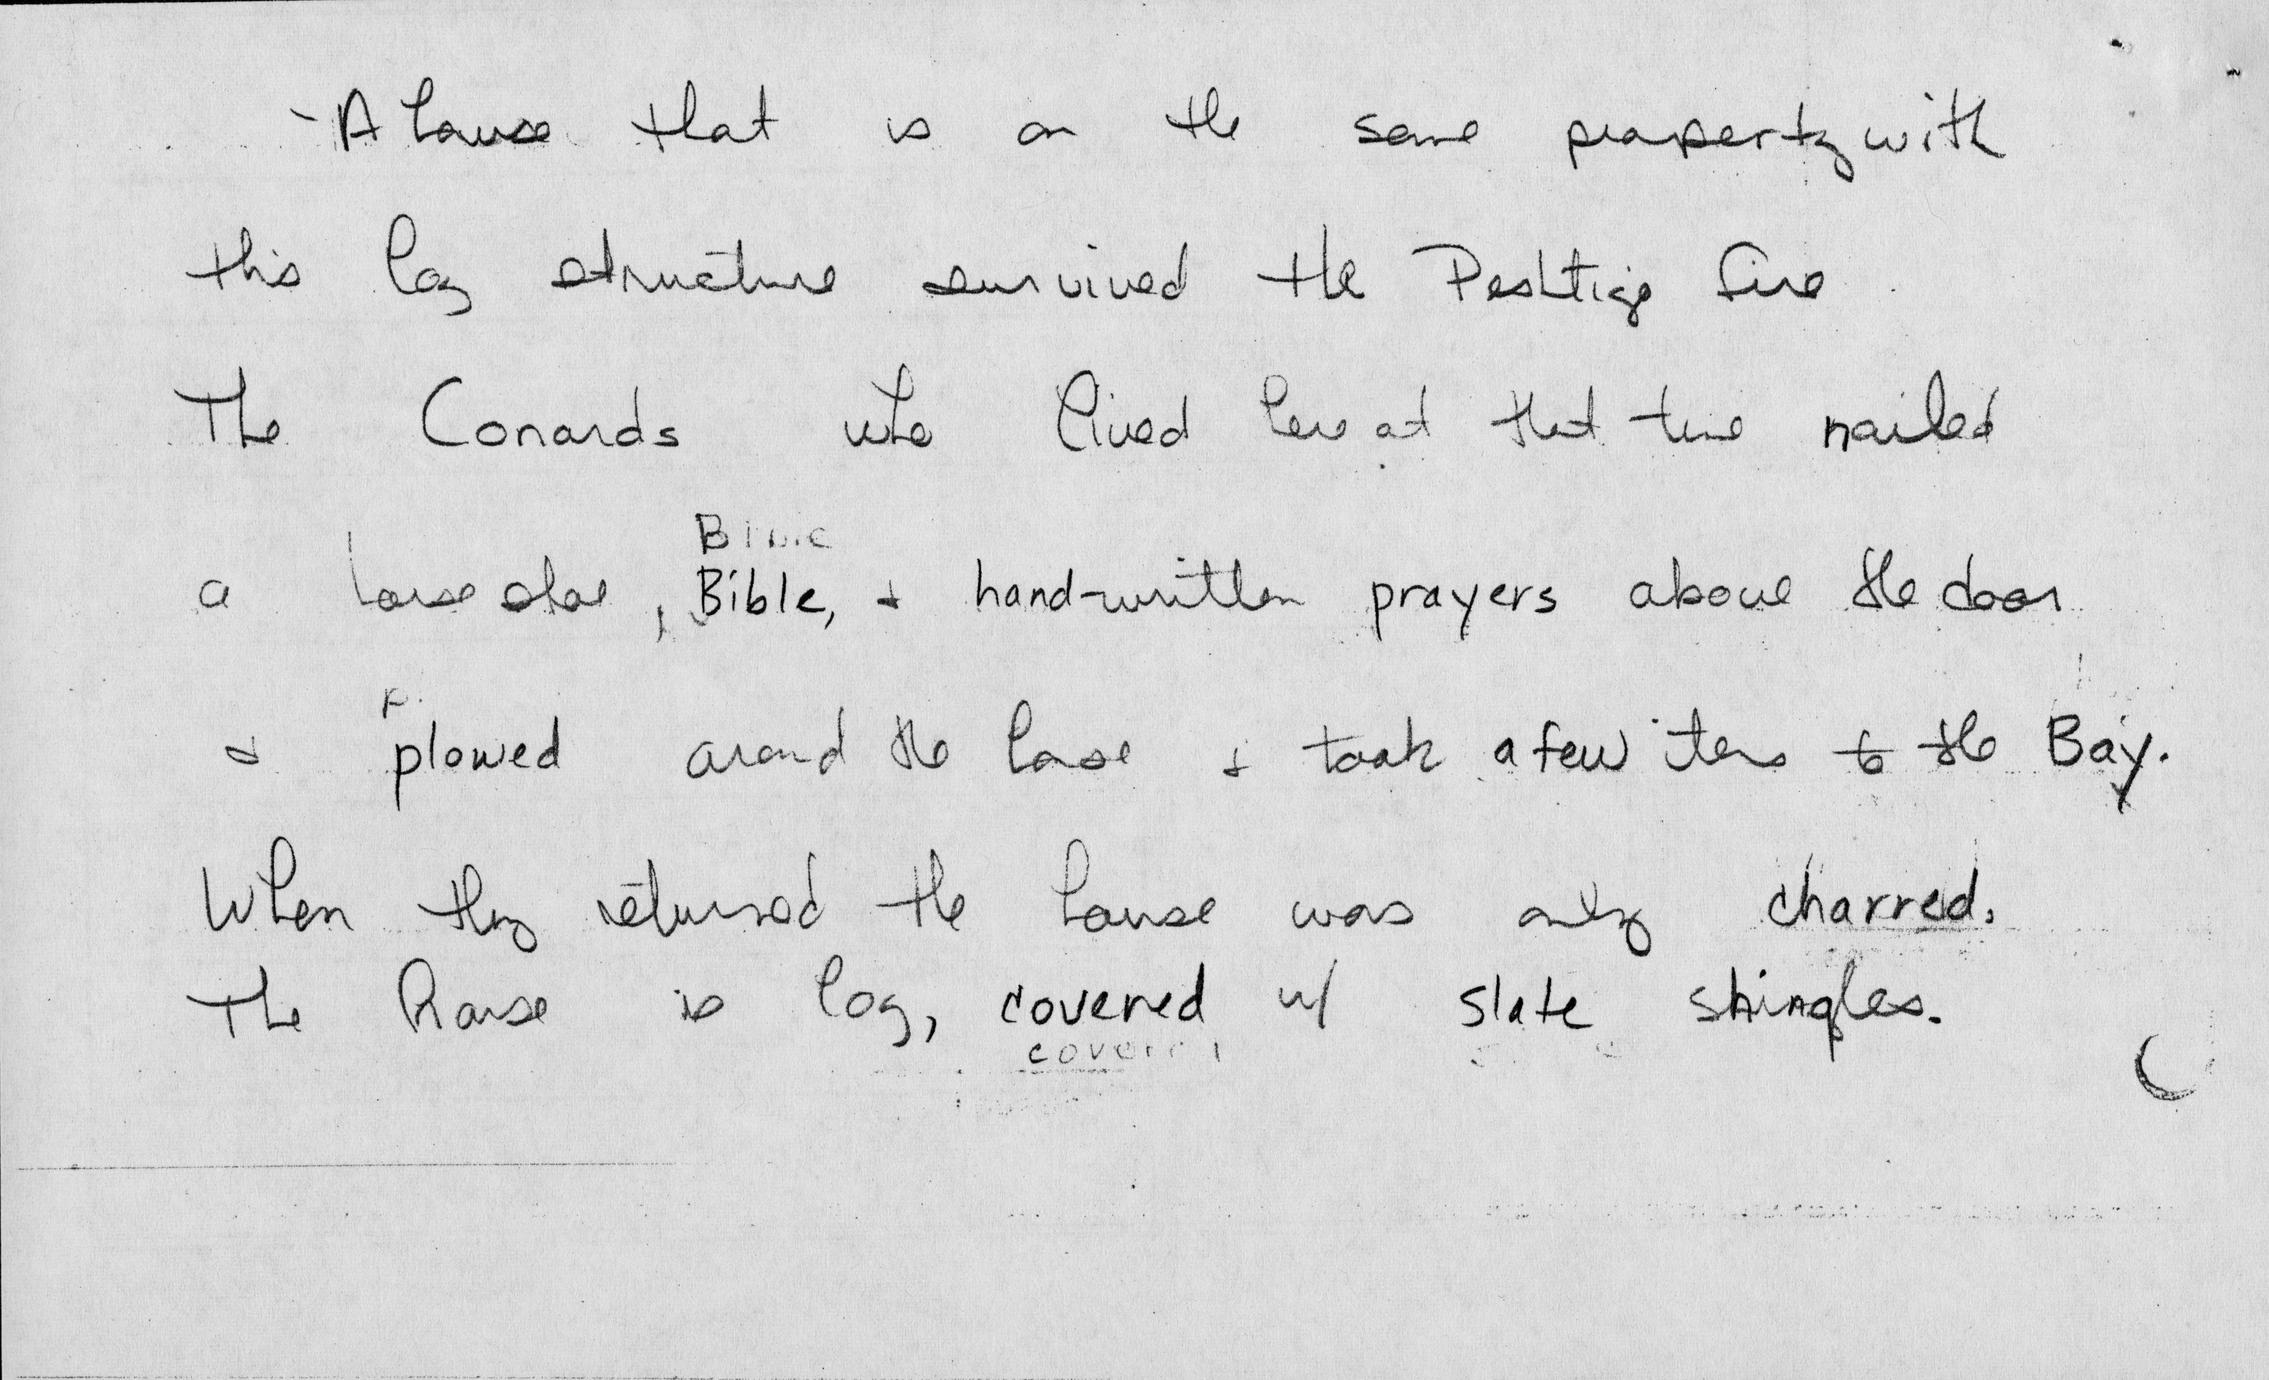 - A house that is on the same property with
this log structure survived the Peshtigo fire
The Conards who lived here at that time nailed
a horse shoe, Bible, & hand-written prayers above the door
& plowed around the house & took a few items to the Bay.
When they returned the house was only charred.
The house is log, covered w/ slate shingles.